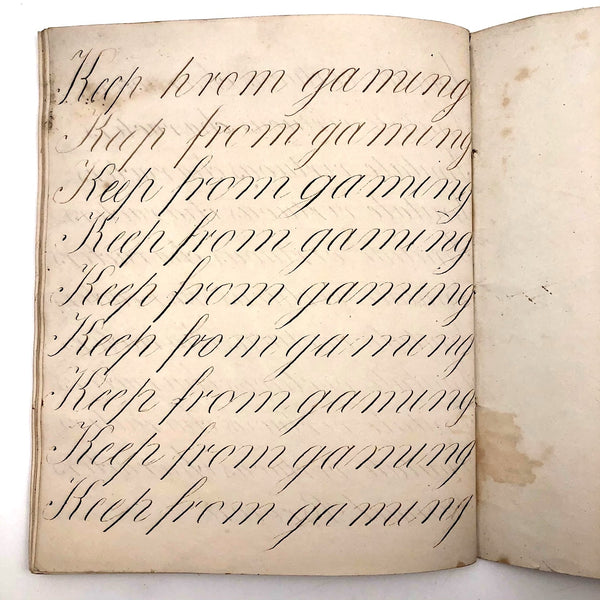 Keep hrom gaming
Keep from gaming
Keep from gaming
Keep from gaming
Keep from gaming
Keep from gaming
Keep from gaming
Keep from gaming
Keep from gaming